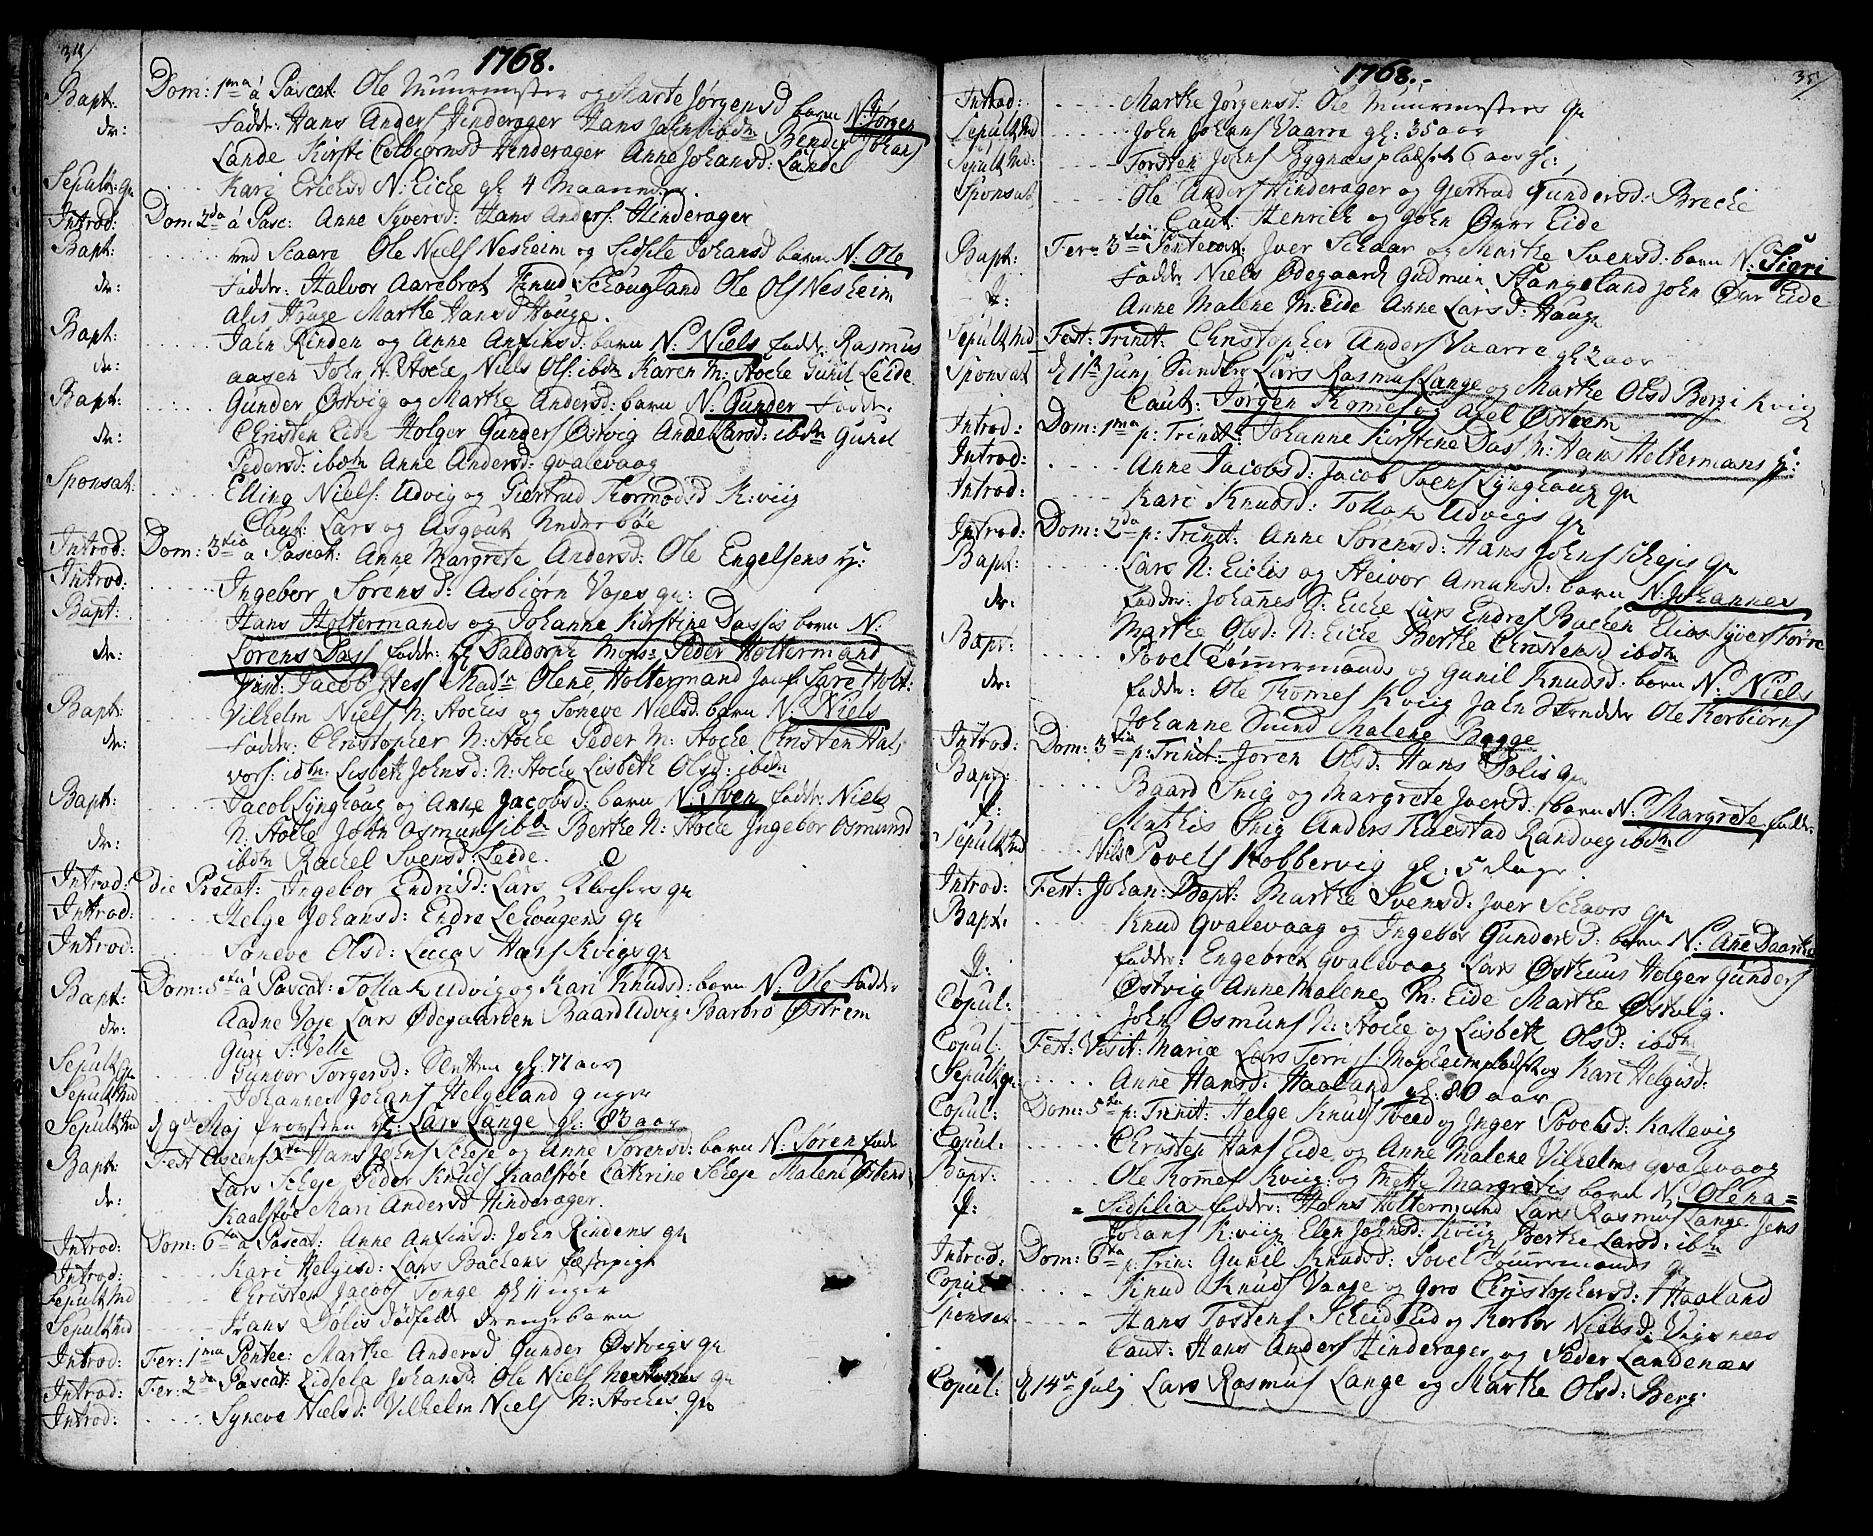 34/
1768.
Bapt: Dom: 1ma á Pascat: Ole Muurmester og Marte Jørgensd barn N: Jørgen
dr: Faddr: Hans Anders Hinderager Hans Johns ibdm Bendix Johans
Lande Kirsti Hinderager Anne Johansd: Lande
Sepult: qv Kari Ericksd N: Eicke gl 4 Maaneder.
Introd: Dom: 2da a Pasc: Anne Syversd: Hans Anders: Hinderager
Bapt: ved Skaare Ole Niels Nesheim og Sidsele Johansd barn N: Ole
dr: Faddr: Halvor Aarebrot Knud Schougland Ole Ols Nesheim
Alis Hauge Marthe Hansd Hauge.
Bapt: John Rinden og Anne Anfinsd: barn N: Niels faddr Rasmus
dr: aasen John N: Stocke Niels Ols: ibdm Karen M: Stocke Gunil Leide.
Bapt: Gunder Østvig og Marthe Andersd: barn N: Gunder Faddr:
dr: Christen Eide Holger Gunders Østvig Ane Larsd: ibdm Gunil
Pedersd: ibdm Anne Andersd: Qvalevaag
Sponsat: Elling Niels: Udvig og Giertrud Thormodsd K: viig
Caut: Lars og Asgout Nederbøe
Introd: Dom: 3tia a Pascat: Anne Margrete Andersd: Ole Engelsens q:
Introd: Ingebor Sørensd: Asbiørn Vojes qv:
Bapt: Hans Holtermands og Johanne Kirstine Dasses barn N:
dr: Sørens Dass faddr: Hr Daldorph Mons: Peder Holtermand
Jacob Hess Madm Olene Holtermand Jomf Sare Holt:
Bapt: Vilhelm Niels N: Stockes og Søneve Nielsd: barn N: Niels
dr: Faddr: Christopher N: Stocke Peder M: Stocke Christen Hal-
vors: ibdm Lisbeth Johnsd: N: Stocke Lisbeth Olsd: ibdm
Bapt: Jacob Lynghaug og Anne Jacobsd: barn N: Sven faddr: Niels
dr: N: Stocke John Osmunds ibdm Berthe N: Stocke Ingebor Osmunsd
ibdm Rachel Svensd: Leide.
Introd: die Precat: Ingebor Endrisd: Lars Klockers qv
Introd: Helge Johansd: Endre Lehougens qv
Introd: Søneve Olsd: Lucas Hans Kvigs qv
Bapt: Dom: 5ta á Pascat: Tollak Udvig og Kari Knudsd: barn N: Ole Faddr
dr: Aadne Voje Lars Ødegaarden Baard Udvig Barbro Østrem
Guri S: Velle
Sepult qv Gunvor Torgersd: Sletten gl: 77 aar
Sepult Md Johannes Johans Helgeland 9 uger
Sepult Md d 9de Maj Provsten Hr: Lars Lange gl: 83 aar
Bapt: Fest Ascens: Xti Hans Johns Scheje og Anne Sørensd: barn N: Søren fadr
dr: Lars Scheje Peder Knuds Kaalstøe Cathrine Scheje Malene Østend
Kaalstøe Mari Andersd Hinderager.
Introd: Dom: 6ta a Pascat: Anne Anfinsd: John Rindens qv
Introd: Kari Helgesd: Lars Backens festepige
Sepult Md Christen Jacobs Tonge gl 11 uger
Sepult Md Hans Dølis dødfødde drengebarn
Introd: Fer: 1ma Pentec: Marthe Andersd Gunder Østvigs qv
Introd: Fer: 2da Pascat: Sidsela Johansd: Ole Niels Nesheims qv
Introd: Syneve Nielsd: Vilhelm Niels N: Stockes qv
1768.
35/
Introd: Marthe Jørgensd: Ole Muurmesters qv
Sepult Md John Johans Vaarre gl: 35 aar
Sepult Md: Torsten Johns Bygnæs pladset 6 aar gl:
Sponsat Ole Anders Hinderager og Giertrud Gundersd: Brecke
Caut: Henrich og John Øvre Eide
Bapt: Fer: 3tia Pentecost: Iver Schaar og Marthe Svensd: barn N: Sigri
dr: Faddr Niels Ødegaard Gudmun Stangeland John Øvr Eide
Anne Malene M: Eide Anne Larsd: Hauge
Sepult Md Fest: Trinit: Christopher Anders Vaarre gl: 2 aar
Sponsat d 1st Junj Lars Rasmus Lange og Marthe Olsd Berg i Kviig
Caut: Jørgen Thomes og Axel Østrem
Introd: Dom: 1ma p: Trinit: Johanne Kirstene Das M: Hans Holtermans q:
Introd: Anne Jacobsd: Jacob Svens Lynghaug qv
Introd: Kari Knudsd: Tollak Udvigs qv
Introd: Dom: 2da p: Trinit: Anne Sørensd: Hans Johns Schejes qv
Bapt: Lars N: Eickes og Steivor Amunsd: barn N: Johannes
dr: Faddr: Johanes S: Eicke Lars Endres Backen Elias Syvers Førre
Marthe Olsd: N: Eicke Berthe Christensd ibdm
Bapt: Povel Tømmermands og Gunil Knudsd: barn N: Niels
dr: Faddr: Ole Thomes Kviig John Skredder Ole Thorbiørns
Johanne Sund Malene Bagge
Introd: Dom: 3tia p: Trinit: Jøren Olsd: Hans Dølis qv
Bapt: Baard Snig og Margrete Iversd: barn N: Margrete faddr:
dr: Mathis Snig Anders Randveg ibdm
Sepult Md Nils Povels Kobbervig gl: 5 dage.
Introd: Fest: Johan: Bapt: Marthe Svensd: Iver Schaars qv
Bapt: Knud Qvalevaag og Ingebor Gundersd: barn N: Anne Daarthe
dr: faddr: Engebreth Qvalevaag Lars Østhuus Holger Gunders
Østvig Anne Malene M: Eide Marthe Østvig.
Copul: John Osmuns N: Stocke og Lisbeth Olsd: ibdm
Copul: Fest: Visit: Mariæ Lars og Kari Helgisd:
Sepult qv: Anne Hansd: Haaland gl: 80 aar
Copul: Dom: 5ta p: Trinit: Helge Knuds Tveed og Inger Povelsd: Kallevig
Copul: Christen Hans Eide og Anne Malene Vilhelms Qvalevaag
Bapt: Ole Thomes Kviig: og Mette Margretes barn N: Olena=
dr: = Sidsilia faddr: Hans Holtermand Lars Rasmus Lange Jens
Johans K: viig Elen Johnsd: Kviig Berthe Larsd: ibdm
Introd: Dom: 6ta p: Trin: Gunil Knudsd: Povel Tømmermands qv
Copul: Knud Knuds Vaage og Goro Christophersd: Haaland
Sponsat Hans Tostens Scheidslid og Thorbor Nielsd: Vigsnes
Caut: Hans Anders Hinderager og Peder Landenæs
Copul: d 14de Julj Lars Rasmus Lange og Marthe Olsd: Berg